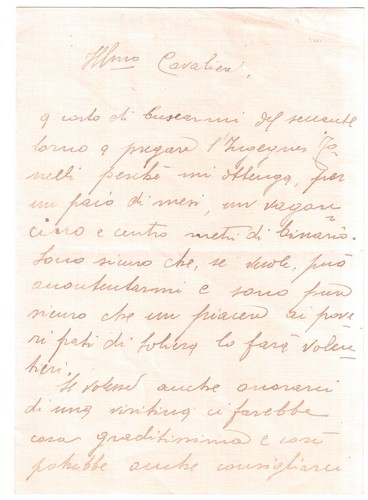 Ill.mo Cavaliere,
a costo di buscarmi del seccante
torno a pregare l'Ingegner Za=
nelli perchè mi ottenga, per
un paio di mesi, un vagon=
cino e cento metri di binario.
Sono sicuro che, se vuole, può
accontentarmi e sono pure
sicuro che un piacere ai pove
ri frati di Soliera lo farà volen=
tieri.
Se volesse anche onorarci
di una visitina ci farebbe
cosa graditissima e così
potrebbe anche consigliarci